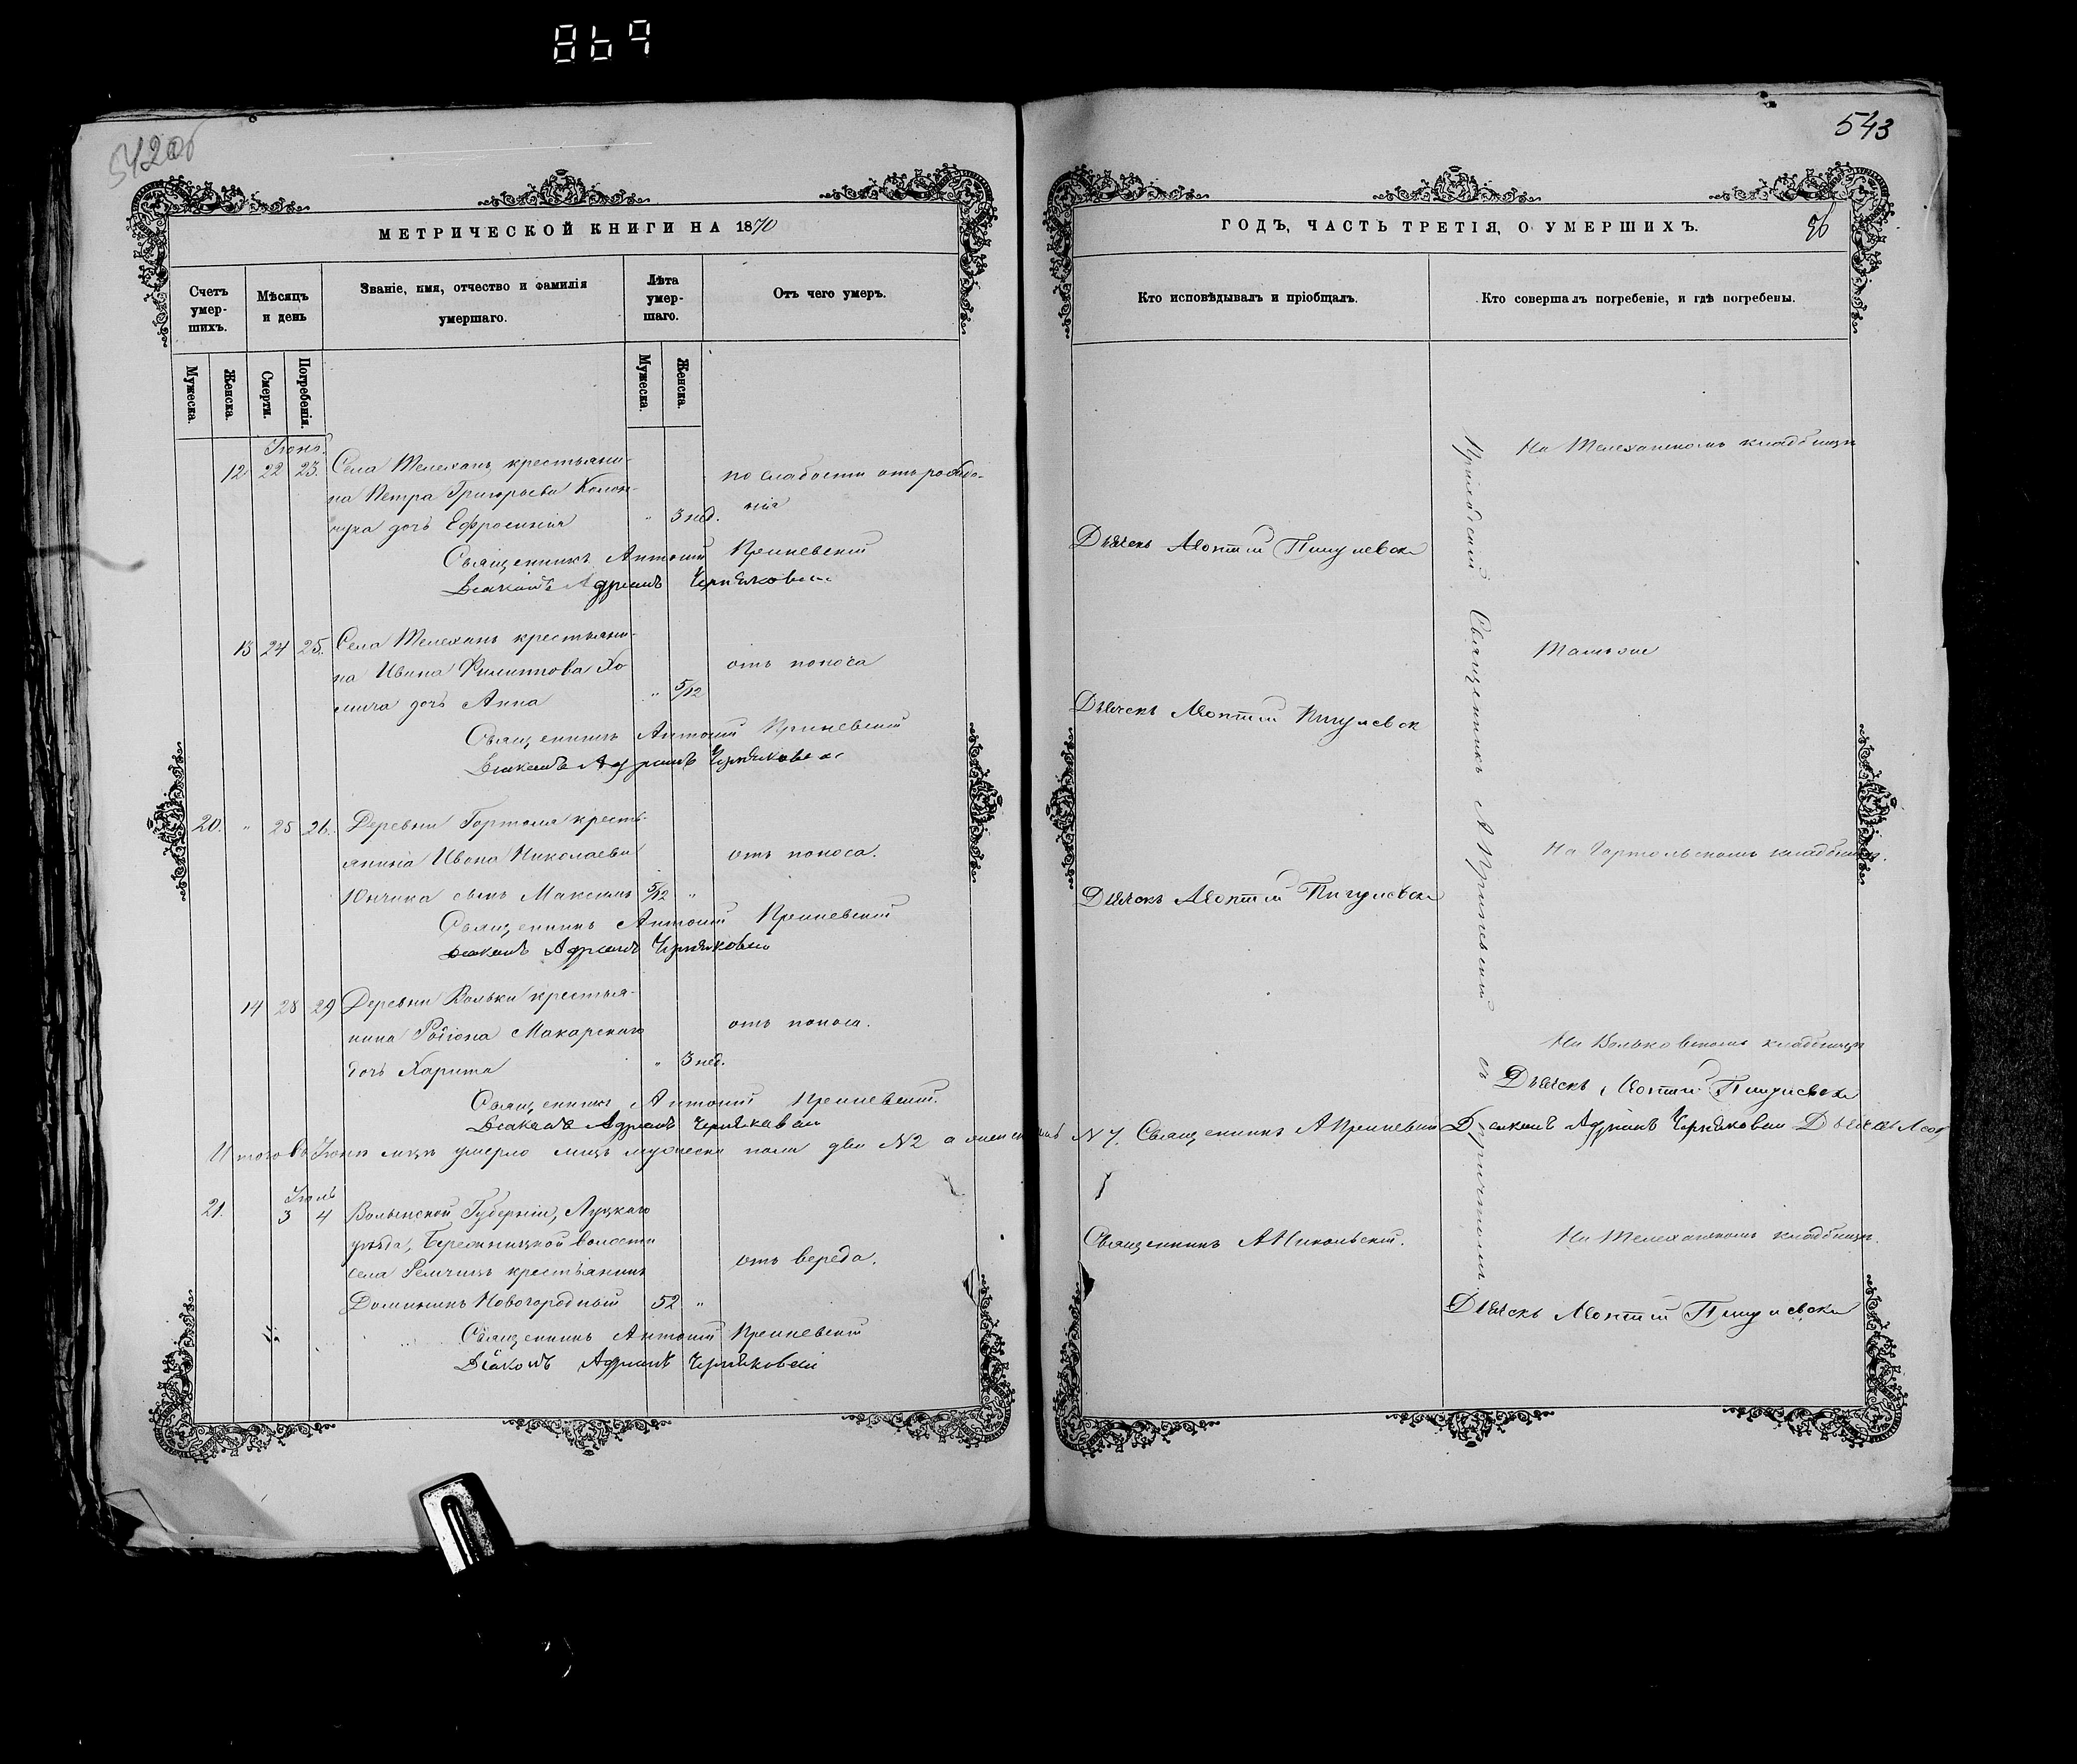 869
542об
543
МЕТРИЧЕСКОЙ КНИГИ НА 1870
Счетъ умер-шихъ.
Мѣсяцъ и день
Званіе, имя, отчество и фамилія умершаго.
Лѣта умер-шаго.
Отъ чего умеръ.
Мужеска.
Женска.
Смерти.
Погребенія.
Мужеска.
Женска.
Іюнь.
12 22 23. Села Телеханъ крестьяни-
на Петра Григорьева
дочь Ефросинія " 3 нед.
по слабости отъ рожде-
нія
Священникъ Антоній
Діаконъ Адріанъ Черняковскій
13 24 25. Села Телеханъ крестьяни-
на Ивана Филиппова Хо
мича дочь Анна " 5/12
отъ поноса
Священникъ Антоній
Діаконъ Адріанъ Черняковскій
20. " 25 26. Деревни Гортоля кресть-
янина Ивана Николаева
Юнчика сынъ Максимъ 5/12 "
отъ поноса.
Священникъ Антоній
Діаконъ Адріанъ Черняковскій
14 28 29 Деревни Вольки крестья-
нина Макарскаго
дочь Харита " 3 нед.
отъ поноса.
Священникъ Антоній
Діаконъ Адріанъ Черняковскій
Итого въ Іюнѣ умерло лицъ мужеска пола два №2 а женскаго
Іюль
21. 3 4 Волынской Губерніи, Луцкаго
уѣзда, Бережницкой волости
села Речицъ крестьянинъ
Доминикъ Новогородный 52 "
отъ вереда.
Священникъ Антоній
Діаконъ Адріанъ Черняковскій
ГОДЪ, ЧАСТЬ ТРЕТІЯ, О УМЕРШИХЪ.
96
Кто исповѣдывалъ и пріобщалъ.
Кто совершалъ погребеніе, и гдѣ погребены.
На Телеханскомъ кладбищѣ
Дьячекъ Леонтій Пигулевскій
Тамъ же
Дьячекъ Леонтій Пигулевск
На Гортольскомъ кладбищѣ.
Дьячекъ Леонтій Пигулевскій
На Вольковскомъ кладбищѣ
Дьячекъ Леонтій Пигулевскій
Священникъ Діаконъ Адріанъ Черняковскій Дьячекъ
Священникъ А Никольскій.
На Телеханскомъ кладбищѣ.
Дьячекъ Леонтій Пигулевскій
Приходскій Священникъ съ причтомъ